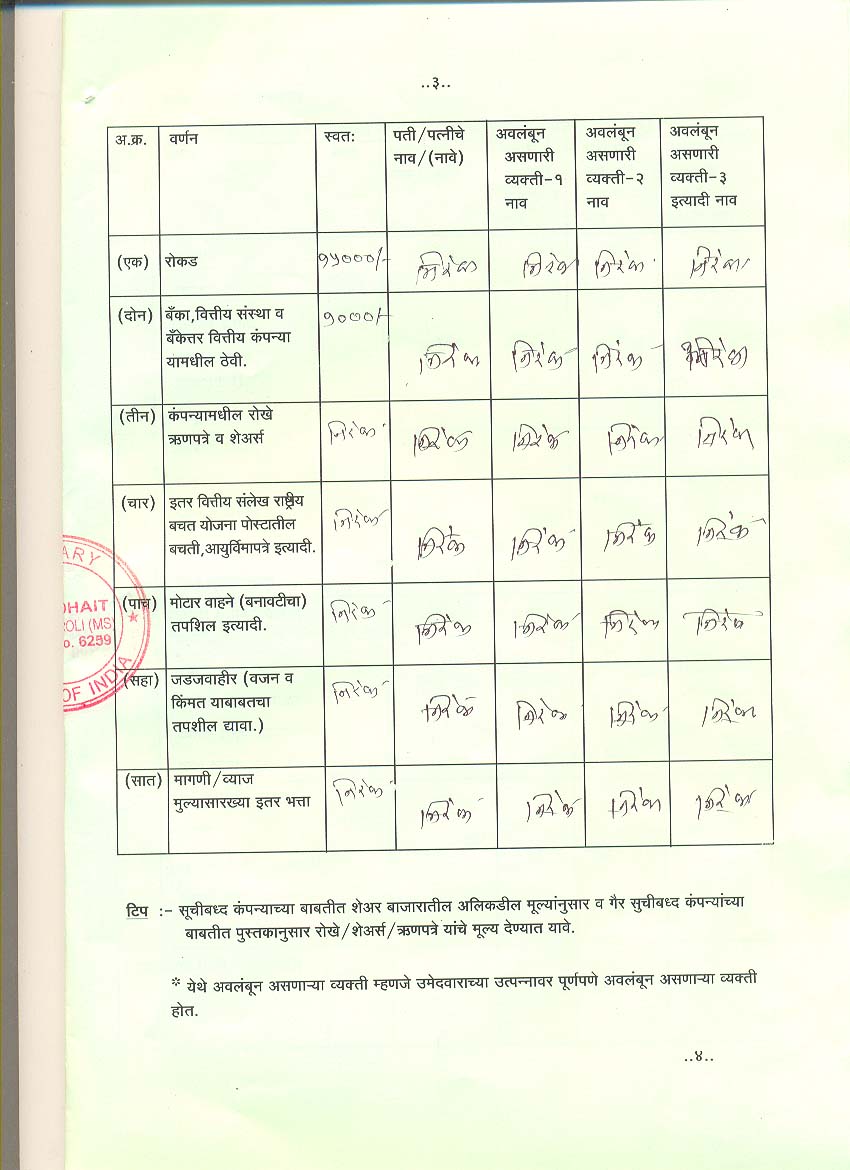 ..३..
अ.क्र. वर्णन स्वत: पती/पत्नीचे नाव/(नावे) अवलंबून असणारी व्यक्ती-१ नाव अवलंबून असणारी व्यक्ती-२ नाव अवलंबून असणारी व्यक्ती-३ इत्यादी नाव
(एक) रोकड १५०००/- निरंक निरंक निरंक निरंक
(दोन) बँका,वित्तीय संस्था व
बँकेत्तर वित्तीय कंपन्या
यामधील ठेवी. १०००/- निरंक निरंक निरंक निरंक
(तीन) कंपन्यामधील रोखे
ऋणपत्रे व शेअर्स निरंक निरंक निरंक निरंक निरंक
(चार) इतर वित्तीय संलेख राष्ट्रीय
बचत योजना पोस्टातील
बचती,आयुर्विमापत्रे इत्यादी. निरंक निरंक निरंक निरंक निरंक
(पाच) मोटार वाहने (बनावटीचा)
तपशिल इत्यादी. निरंक निरंक निरंक निरंक निरंक
(सहा) जडजवाहीर (वजन व
किंमत याबाबतचा
तपशील द्यावा.) निरंक निरंक निरंक निरंक निरंक
(सात) मागणी/व्याज
मुल्यासारख्या इतर भत्ता निरंक निरंक निरंक निरंक निरंक
ARY
DHAIT
ROLI (MS)
No. 6259
OF INDIA
टिप :- सूचीबध्द कंपन्याच्या बाबतीत शेअर बाजारातील अलिकडील मूल्यांनुसार व गैर सुचीबध्द कंपन्यांच्या
बाबतीत पुस्तकानुसार रोखे/शेअर्स/ऋणपत्रे यांचे मूल्य देण्यात यावे.
* येथे अवलंबून असणाऱ्या व्यक्ती म्हणजे उमेदवाराच्या उत्पन्नावर पूर्णपणे अवलंबून असणाऱ्या व्यक्ती
होत.
..४..